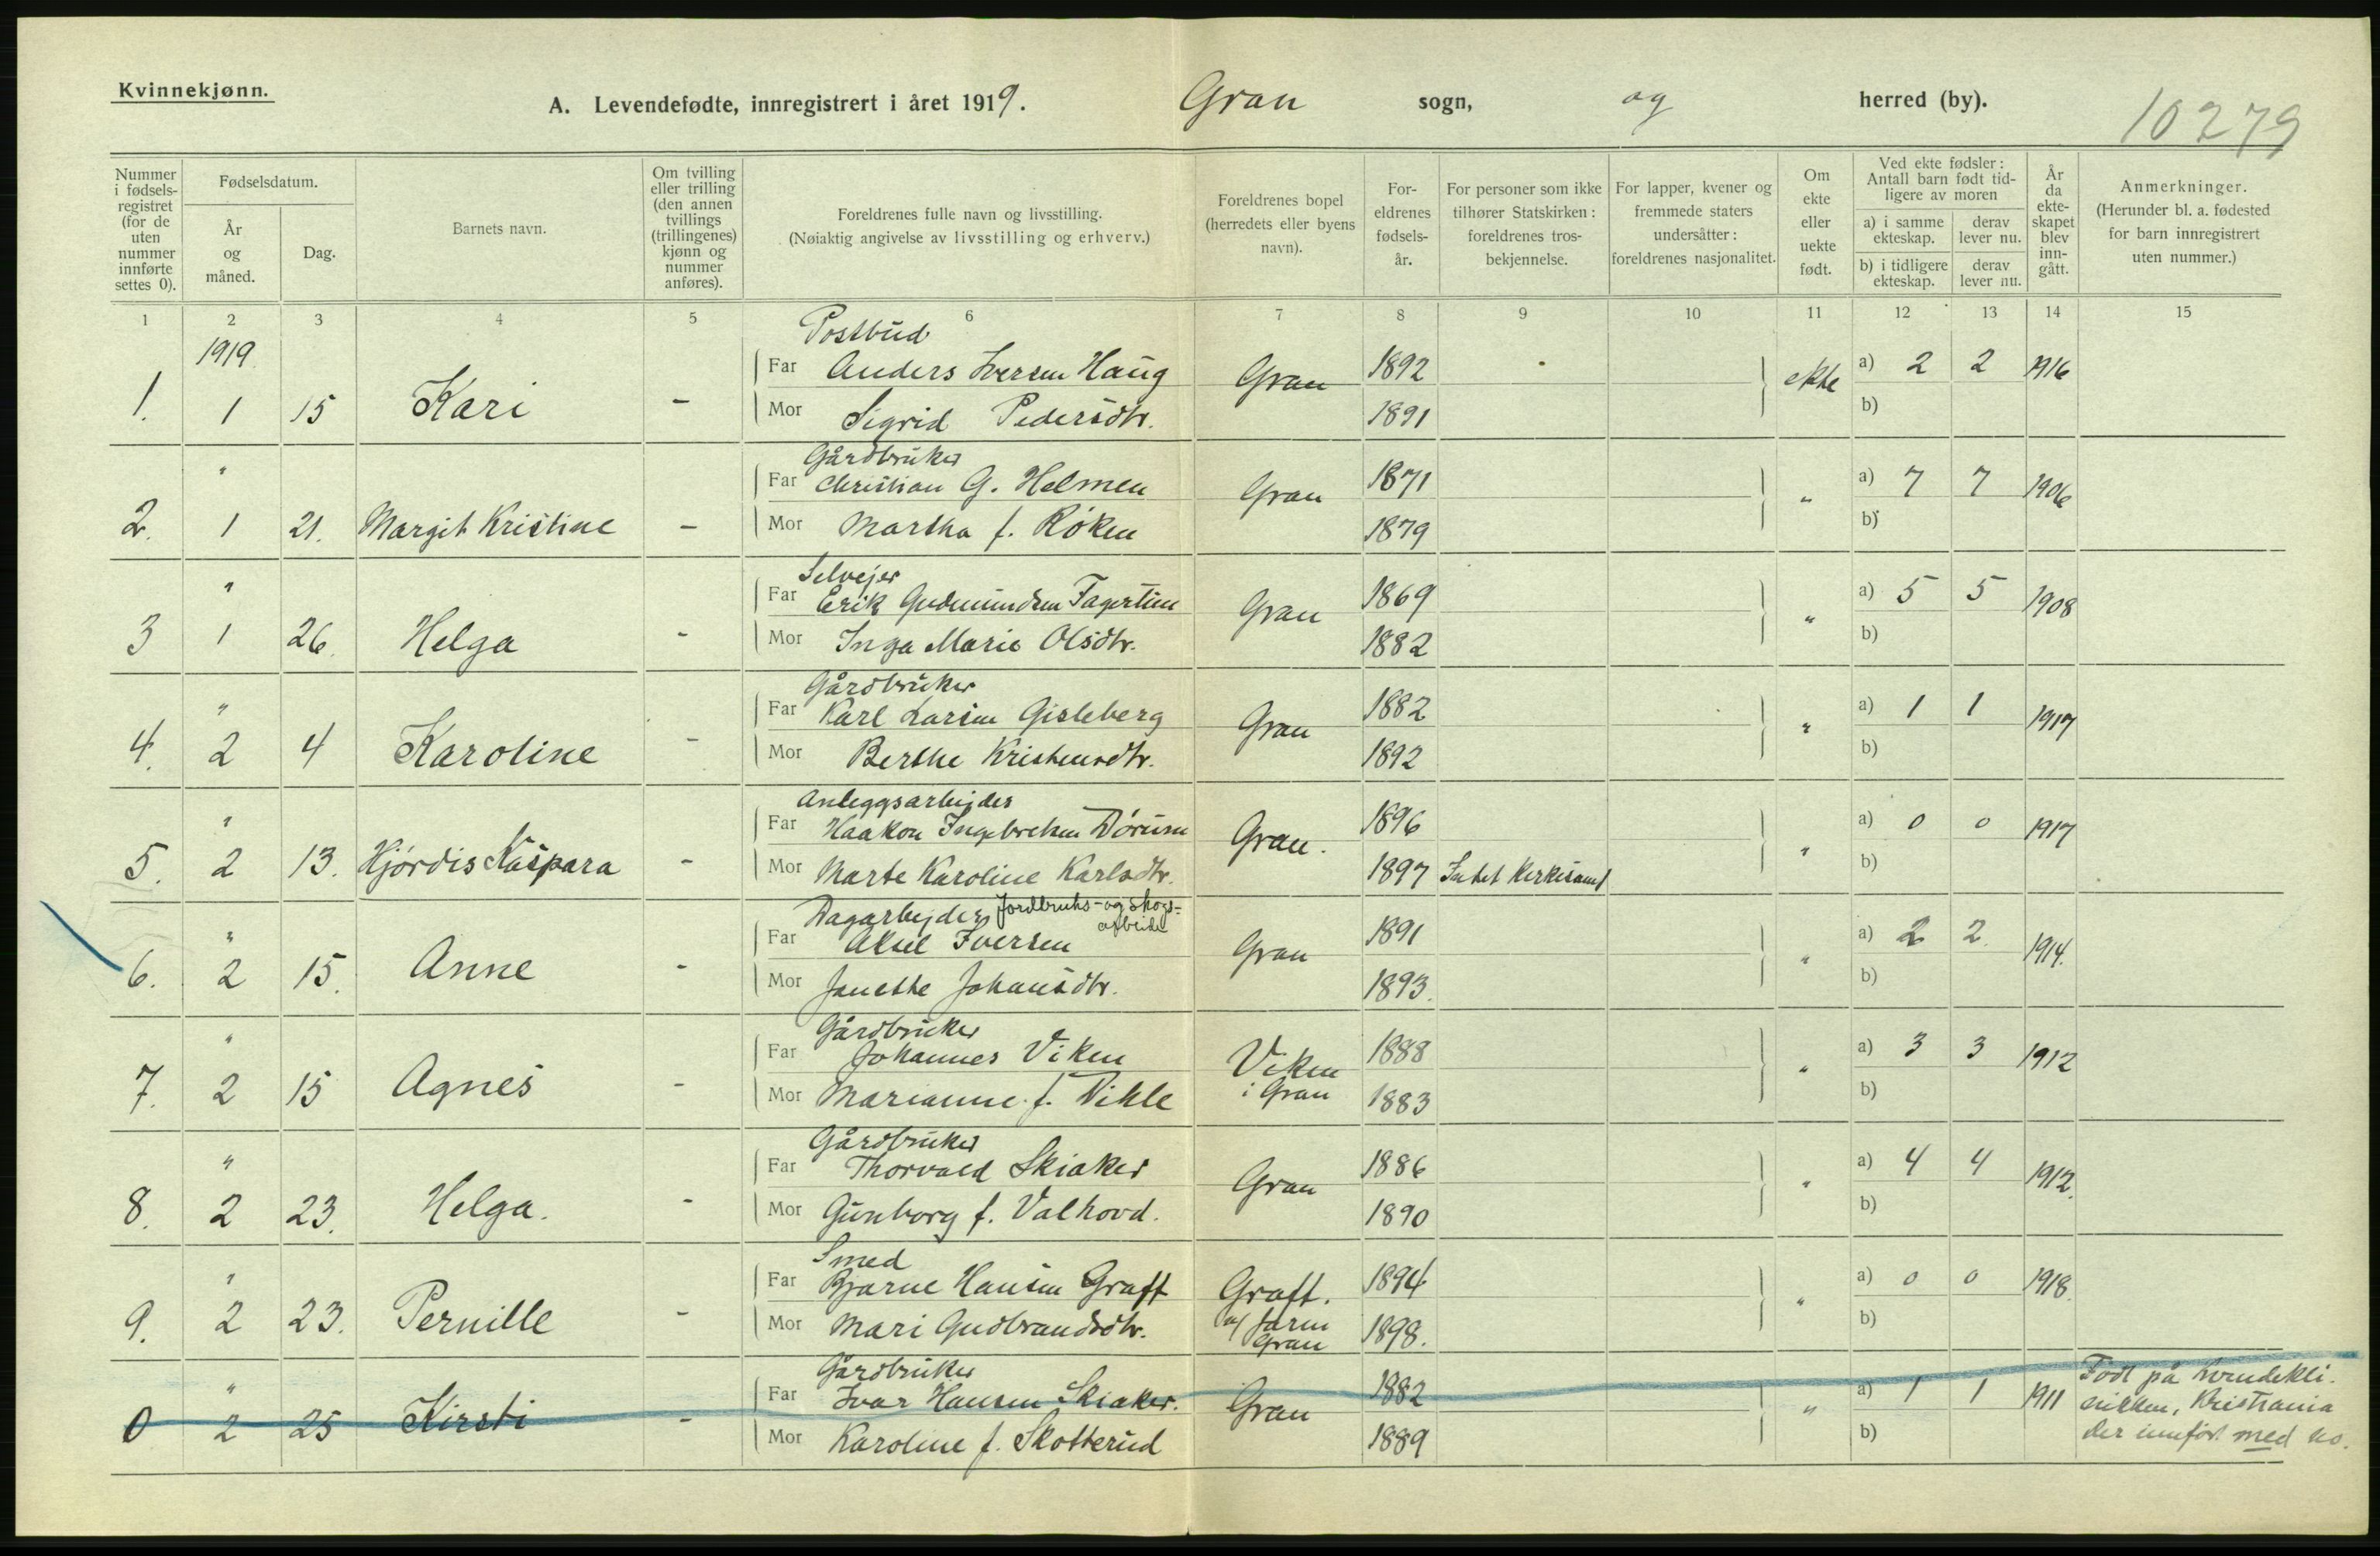 Kvinnekjønn.
A. Levendefødte, innregistrert i året 1919.
Gran sogn, og herred (by).
10279
Nummer i fødselsregistret (for de uten nummer innførte settes 0).
Fødselsdatum.
År og måned.
Dag.
Barnets navn.
Om tvilling eller trilling (den annen tvillings (trillingenes) kjønn og nummer anføres).
Foreldrenes fulle navn og livsstilling.
(Nøiaktig angivelse av livsstilling og erhverv.)
Foreldrenes bopel (herredets eller byens navn).
Foreldrenes fødselsår.
For personer som ikke tilhører Statskirken: foreldrenes trosbekjennelse.
For lapper, kvener og fremmede staters undersåtter: foreldrenes nasjonalitet.
Om ekte eller uekte født.
Ved ekte fødsler: Antall barn født tidligere av moren
a) i samme ekteskap.
derav lever nu.
b) i tidligere ekteskap.
derav lever nu.
År da ekteskapet blev inngått.
Anmerkninger.
(Herunder bl. a. fødested for barn innregistrert uten nummer.)
1 2 3 4 5 6 7 8 9 10 11 12 13 14 15
1919
Postbud
Far Anders Iversen Haug 1892 a) 2 2 1916
1. 1 15 Kari - Gran ekte
Mor Sigrid Pedersdtr. 1891 b)
Gårdbruker
" Far Christian G. Helmen 1871 a) 7 7 1906
2. 1 21. Margit Kristine - Gran "
Mor Martha f. Røken 1879 b)
Selvejer
" Far Erik Gudmundsen Fagertun 1869 a) 5 5 1908
3 1 26. Helga - Gran "
Mor Inga Marie Olsdtr. 1882 b)
Gårdbruker
" Far Karl Larsen Gisleberg 1882 a) 1 1 1917
4. 2 4 Karoline - Gran "
Mor Berthe Kristensdtr. 1892 b)
Anleggsarbejder
" Far Haakon Ingebretsen Dørum 1896 a) 0 0 1917
5. 2 13. Hjørdis Kaspara - Gran. "
Mor Marte Karoline Karlsdtr. 1897 Intet kirkesamf b)
Dagarbejder Jordbruks- og skogsarbeider
" Far Aksel Iversen 1891 a) 2 2. 1914.
6. 2 15. Anne - Gran "
Mor Janethe Johansdtr. 1893. b)
Gårdbruker
" Far Johannes Viken 1888 a) 3 3 1912
7. 2 15 Agnes - Viken i Gran "
Mor Marianne f. 1883 b)
Gårdbruker
" Far Thorvald Skiaker 1886 a) 4 4 1912.
8. 2 23. Helga. - Gran "
Mor Gunborg f. Valhovd. 1890 b)
Smed
" Far Bjarne Hansen Graft 1894 a) 0 0 1918.
9. 2 23. Pernille - Graft. Gran "
Mor Mari Gudbrandsdtr. 1898. b)
Gårdbruker
" Far Ivar Hansen Skiaker. 1882 a) 1 1 1911
0 2 25 Kirsti - Gran "
Mor Karoline f. Skotterud 1889 b)
Født på kvindekli-
nikken, Kristiania
der innfør. med no.